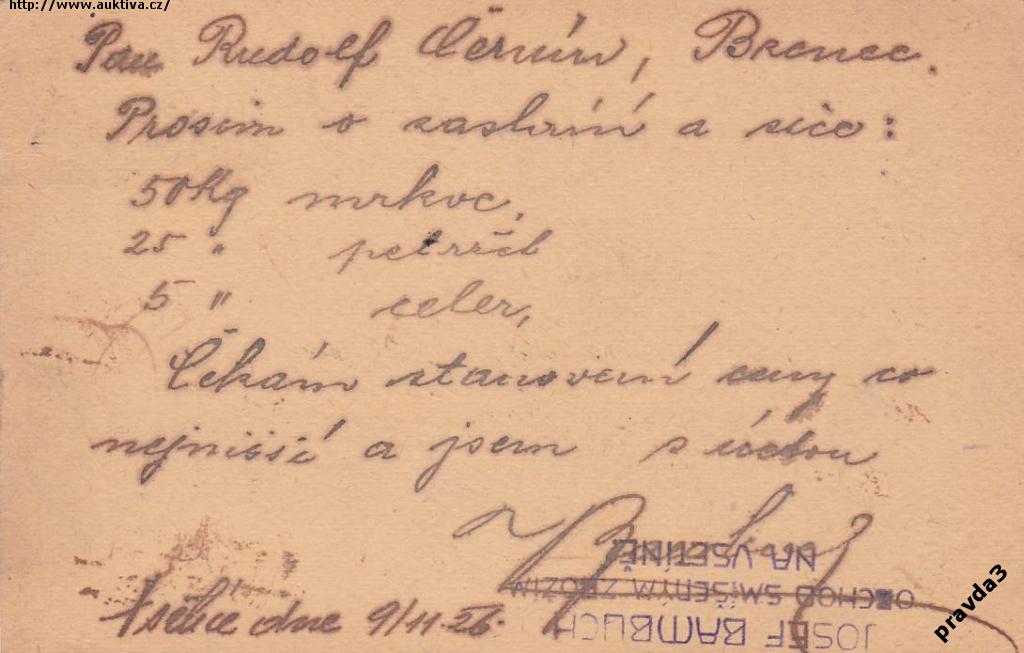 http://www.auktiva.cz/
Pan Rudolf Černín, Brenec.
Prosim o zaslání a sice:
50 Kg mrkve,
25 " petržel
5 " celer,
Čekám stanovení ceny co
nejnišší a jsem s úctou
JOSEF BAMBUCH
OBCHOD SMÍŠENÝM ZBOŽÍM
NA VSETÍNĚ
dne 9/11.26.
pravda3